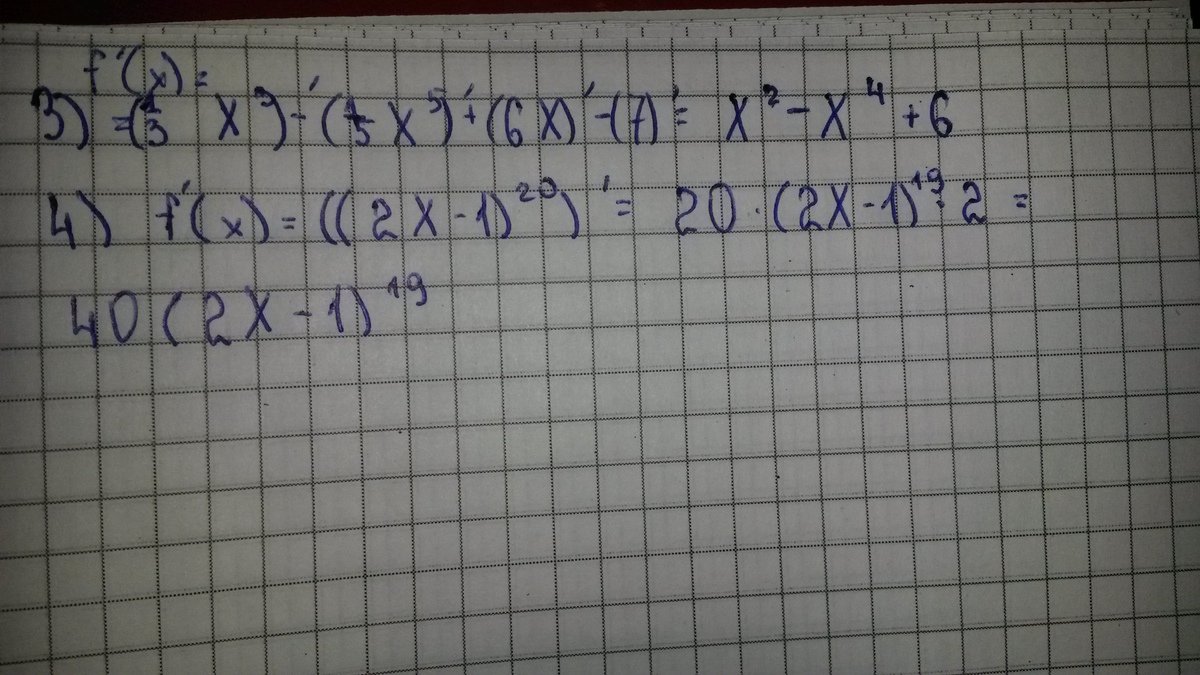 f'(x) =
3) = (1/3 x³)' - (1/5 x⁵)' + (6x)' - (7)' = x² - x⁴ + 6
4) f'(x) = ((2x - 1)²⁰)' = 20 · (2x - 1)¹⁹ · 2 =
40 (2x - 1)¹⁹